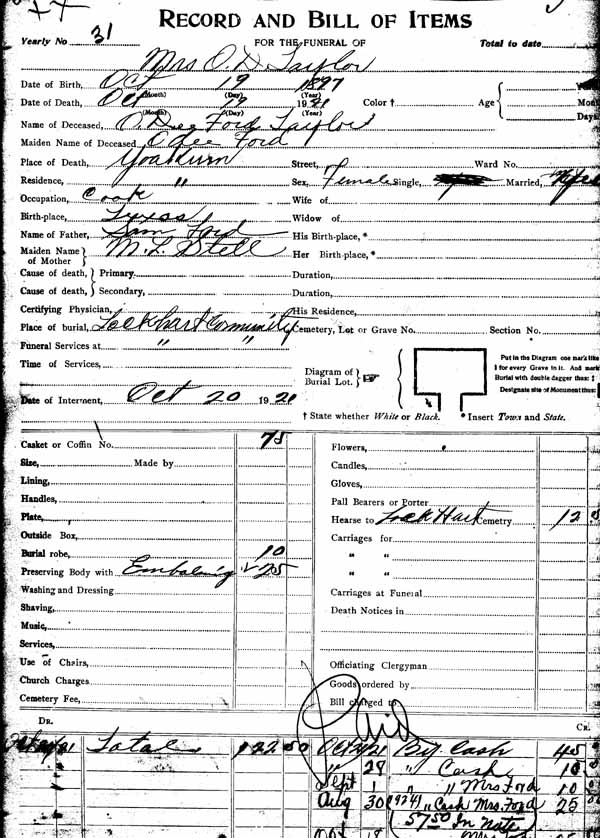 RECORD AND BILL OF ITEMS
Yearly No 31 FOR THE FUNERAL OF Total to date
Mrs O. D. Taylor
Date of Birth, Oct 19 1897
(Month) (Day) (Year)
Date of Death, Oct 19 1921 Color † Age
(Month) (Day) (Year) Days
Name of Deceased, O Dee Ford Taylor
Maiden Name of Deceased, O dee Ford
Place of Death, Yoakum Street, Ward No.
Residence, " Sex, Female Single, Married,
Occupation, Cook Wife of
Birth-place, Texas Widow of
Name of Father, Sam Ford His Birth-place, *
Maiden Name of Mother M. L. Stell Her Birth-place, *
Cause of death, Primary. Duration,
Cause of death, Secondary, Duration,
Certifying Physician, His Residence,
Place of burial, Lockhart Community Cemetery, Lot or Grave No. Section No.
Funeral Services at " "
Time of Services,
Diagram of Burial Lot.
Put in the Diagram one mark like
‡ for every Grave in it. And mark
Burial with double dagger thus: ‡
Designate site of Monument thus:
Date of Interment, Oct 20 1921
† State whether White or Black. * Insert Town and State.
Casket or Coffin No. 75 Flowers,
Size, Made by Candles,
Lining, Gloves,
Handles, Pall Bearers or Porter
Plate, Hearse to Lock Hart Cemetry 12
Outside Box, Carriages for
Burial robe, 10 " "
Preserving Body with Embalming 25 " "
Washing and Dressing Carriages at Funeral
Shaving, Death Notices in
Music,
Services,
Use of Chairs, Officiating Clergyman
Church Charges Goods ordered by
Cemetery Fee, Bill charged to
Paid
DR. CR.
Total 122 50 Oct 21 By Cash 45
" 28 " Cash 10
Sept 1 " " Mrs Ford 10
Aug 30 1924 " Cash Mrs. Ford 25
57.50 In Note